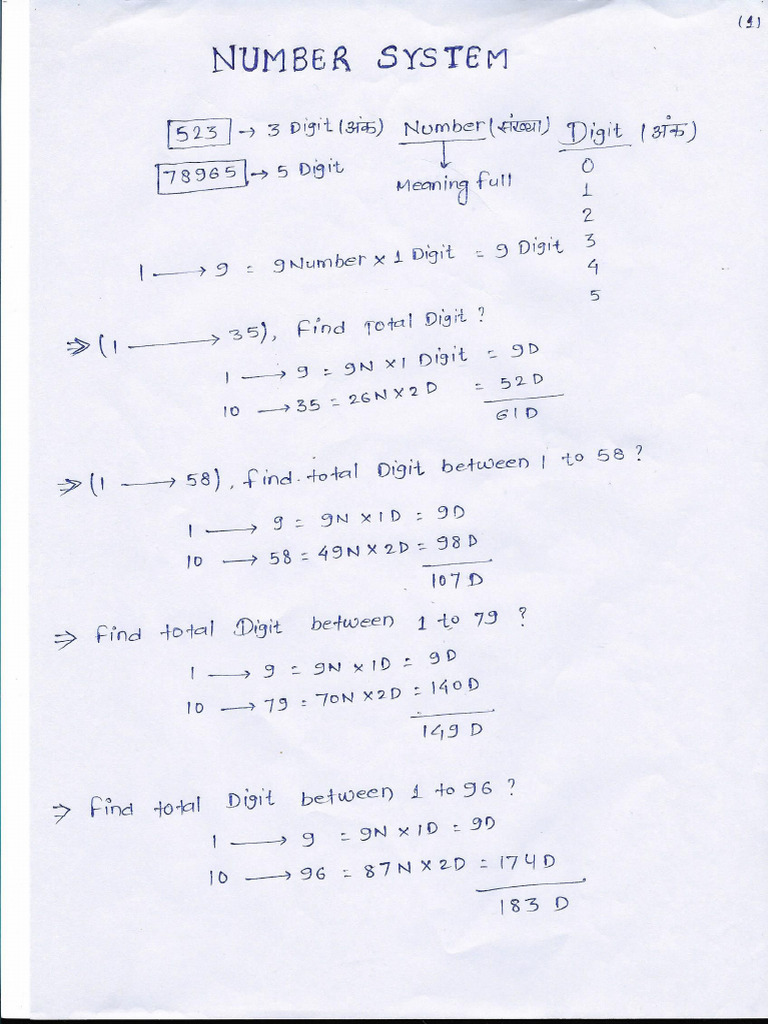 (1)
NUMBER SYSTEM
523 → 3 Digit (अंक) Number (संख्या) Digit (अंक)
78965 → 5 Digit
↓
Meaning full
0
1
2
3
4
5
1 → 9 = 9Number × 1 Digit = 9 Digit
⇒ (1 → 35), Find Total Digit?
1 → 9 = 9N × 1 Digit = 9D
10 → 35 = 26N × 2D = 52D
61D
⇒ (1 → 58), Find total Digit between 1 to 58?
1 → 9 = 9N × 1D = 9D
10 → 58 = 49N × 2D = 98D
107D
⇒ Find total Digit between 1 to 79?
1 → 9 = 9N × 1D = 9D
10 → 79 = 70N × 2D = 140D
149D
⇒ Find total Digit between 1 to 96?
1 → 9 = 9N × 1D = 9D
10 → 96 = 87N × 2D = 174D
183 D